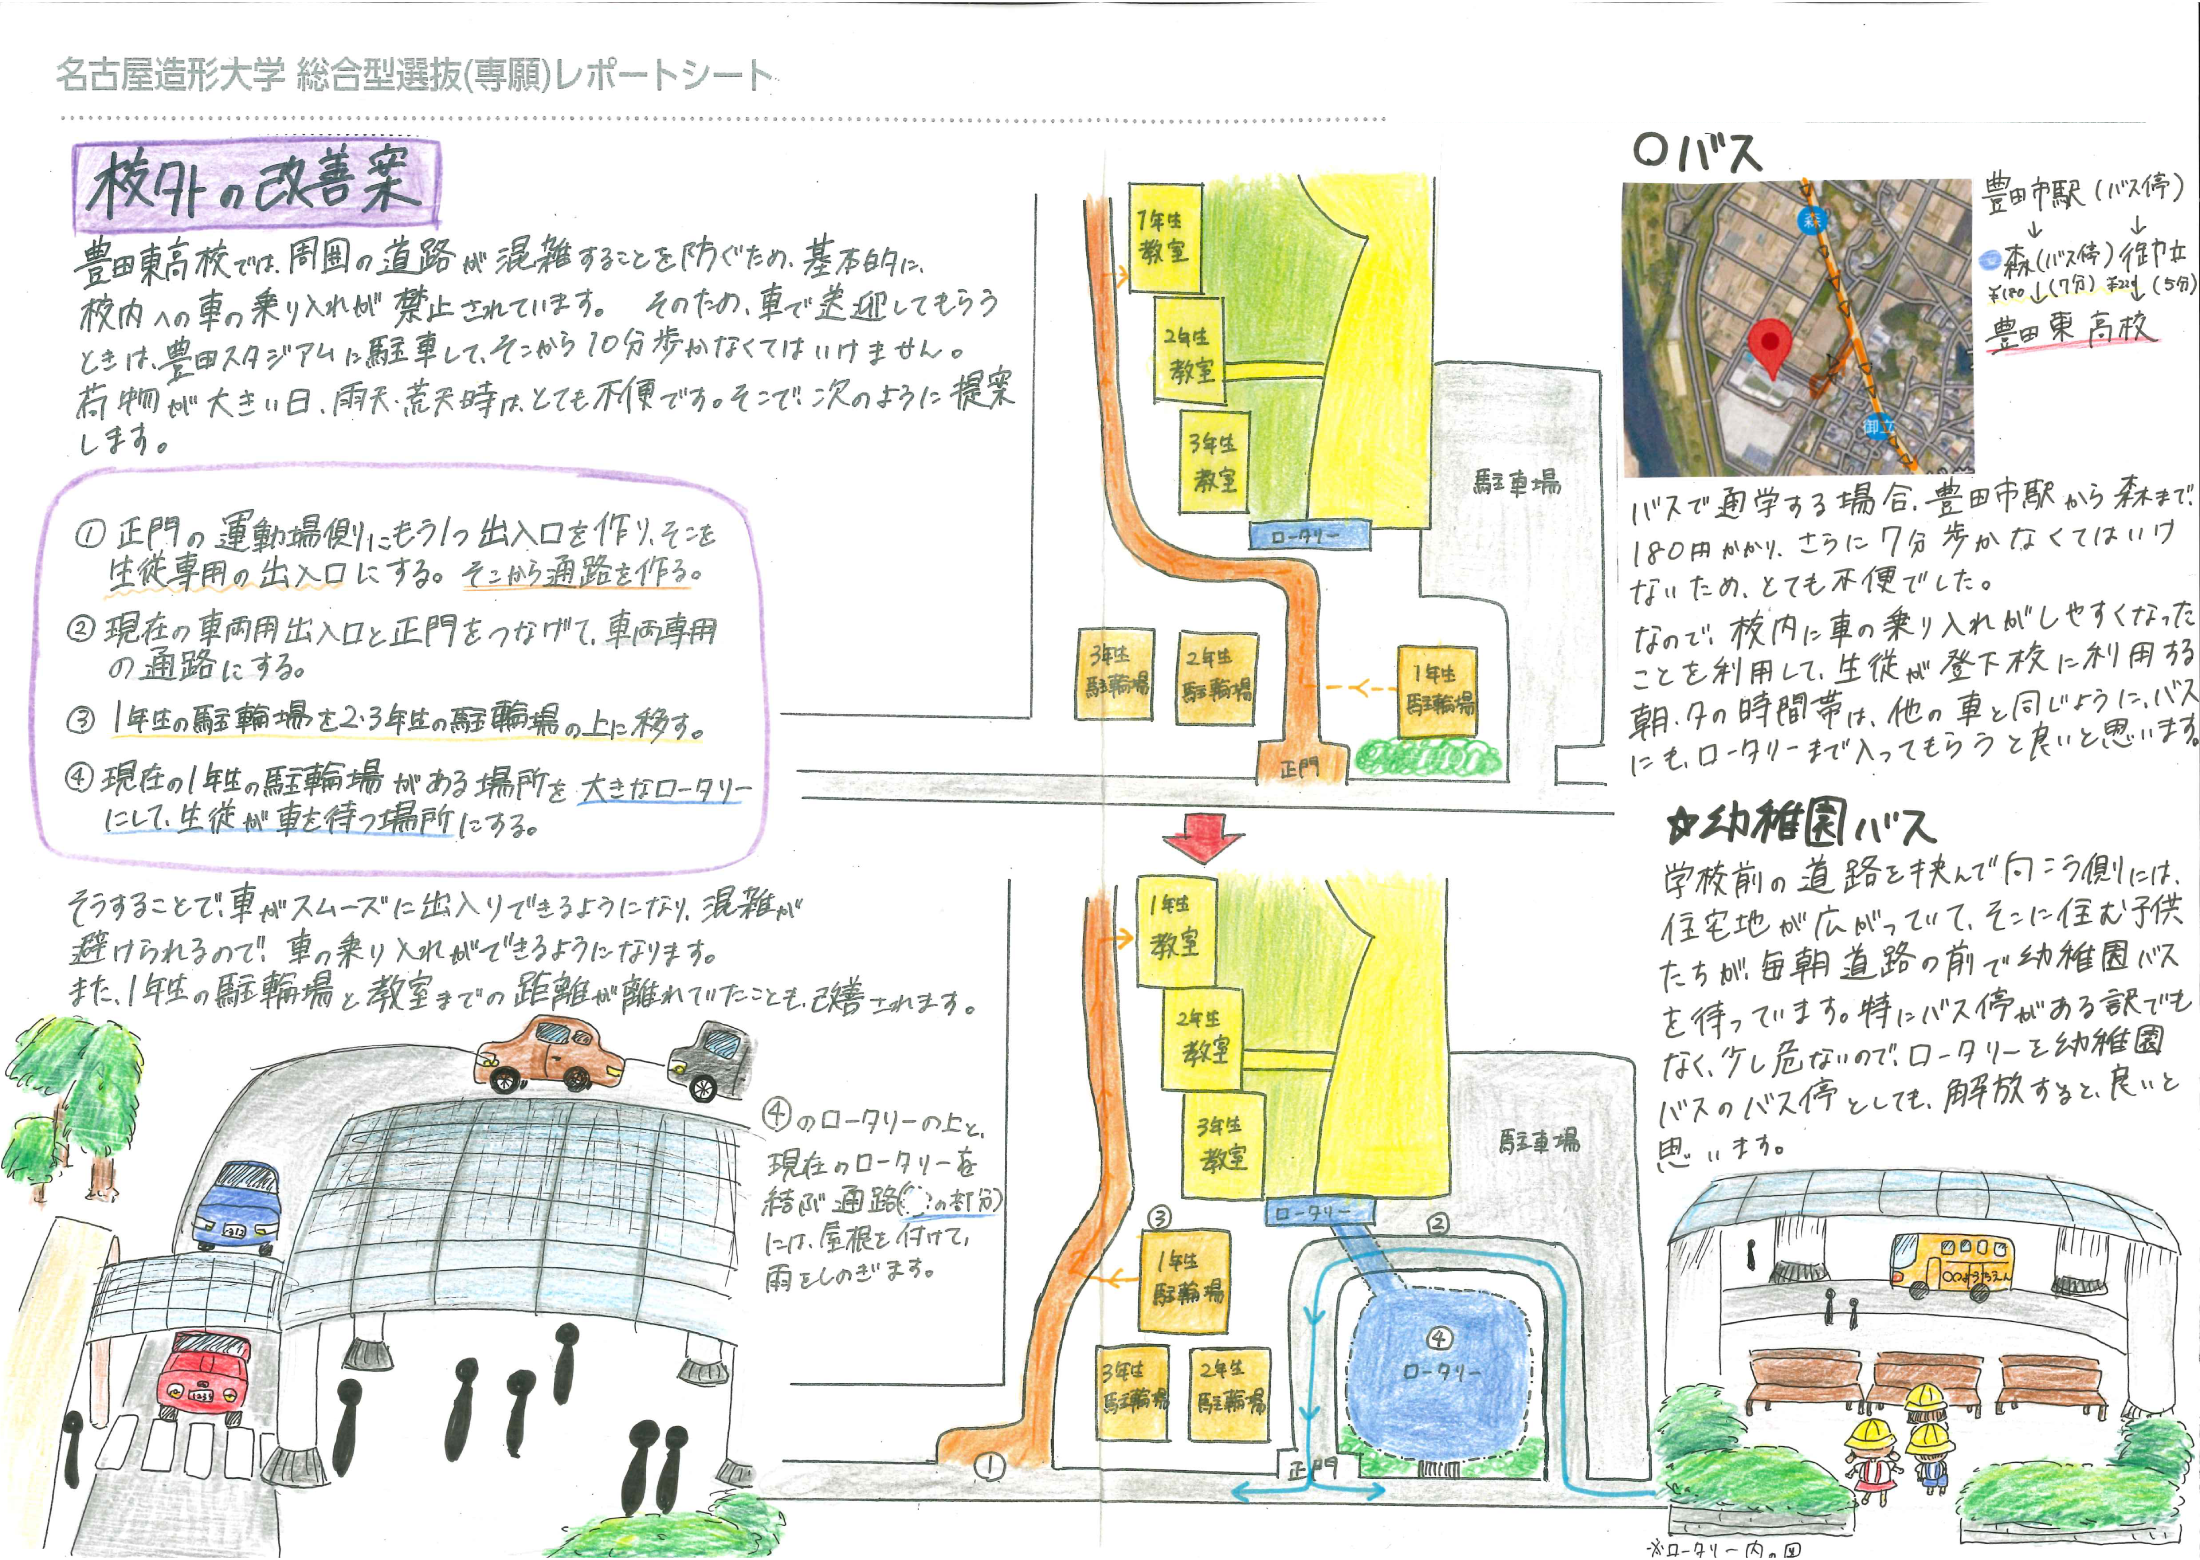 名古屋造形大学 総合型選抜(専願)レポートシート
校外の改善案
豊田東高校では、周囲の道路が混雑することを防ぐため、基本的に、
校内への車の乗り入れが禁止されています。 そのため、車で送迎してもらう
ときは、豊田スタジアムに駐車して、そこから10分歩かなくてはいけません。
荷物が大きい日、雨天・荒天時は、とても不便です。そこで、次のように提案
します。
① 正門の運動場側にもう1つ出入口を作り、そこを
生徒専用の出入口にする。そこから通路を作る。
② 現在の車両用出入口と正門をつなげて、車両専用
の通路にする。
③ 1年生の駐輪場を2・3年生の駐輪場の上に移す。
④ 現在の1年生の駐輪場がある場所を大きなロータリー
にして、生徒が車を待つ場所にする。
そうすることで、車がスムーズに出入りできるようになり、混雑が
避けられるので、車の乗り入れができるようになります。
また、1年生の駐輪場と教室までの距離が離れていたことも、改善されます。
④のロータリーの上と、
現在のロータリーを
結ぶ通路(の部分)
には、屋根を付けて、
雨をしのぎます。
1234
1年生
教室
2年生
教室
3年生
教室
ロータリー
駐車場
3年生
駐輪場
2年生
駐輪場
1年生
駐輪場
正門
1年生
教室
2年生
教室
3年生
教室
ロータリー
駐車場
②
③
1年生
駐輪場
3年生
駐輪場
2年生
駐輪場
④
ロータリー
正門
①
○バス
森
御立
豊田市駅(バス停)
↓ ↓
森(バス停) 御立
¥180↓(7分) ¥220↓(5分)
豊田東高校
バスで通学する場合、豊田市駅から森まで、
180円かかり、さらに7分歩かなくてはいけ
ないため、とても不便でした。
なので、校内に車の乗り入れがしやすくなった
ことを利用して、生徒が登下校に利用する
朝・夕の時間帯は、他の車と同じように、バス
にも、ロータリーまで入ってもらうと良いと思います。
☆幼稚園バス
学校前の道路を挟んで向こう側には、
住宅地が広がっていて、そこに住む子供
たちが、毎朝道路の前で幼稚園バス
を待っています。特にバス停がある訳でも
なく、少し危ないので、ロータリーを幼稚園
バスのバス停としても、解放すると、良いと
思います。
○○ようちえん
※ロータリー内の図